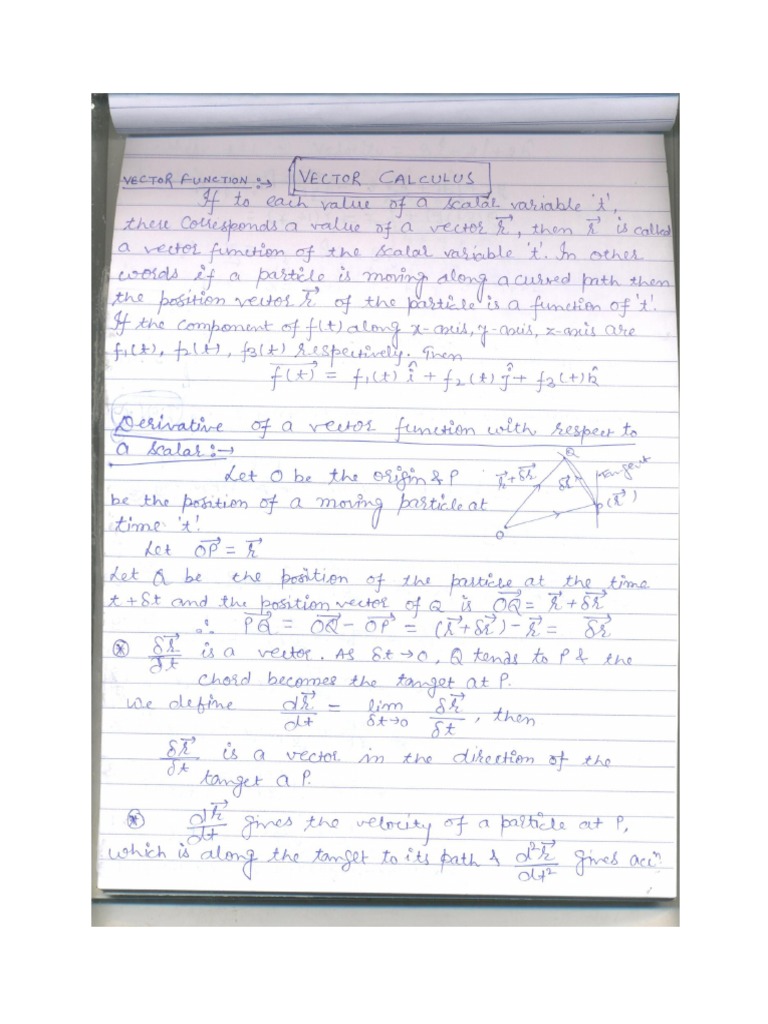 VECTOR CALCULUS
VECTOR FUNCTION :→
If to each value of a scalar variable 't',
there corresponds a value of a vector r⃗, then r⃗ is called
a vector function of the scalar variable 't'. In other
words if a particle is moving along a curved path then
the position vector r⃗ of the particle is a function of 't'.
If the component of f(t) along x-axis, y-axis, z-axis are
f₁(t), f₂(t), f₃(t) respectively. Then
f(t)⃗ = f₁(t) î + f₂(t) ĵ + f₃(t) k̂
Derivative of a vector function with respect to
a scalar :→
Let O be the origin & P
be the position of a moving particle at
time 't'.
Q
r⃗+δr⃗
δr⃗
tangent
P(r⃗)
O
Let OP⃗ = r⃗
Let Q be the position of the particle at the time
t + δt and the position vector of Q is OQ⃗ = r⃗ + δr⃗
∴ PQ⃗ = OQ⃗ − OP⃗ = (r⃗+δr⃗) − r⃗ = δr⃗
* δr⃗/δt is a vector. As δt → 0, Q tends to P & the
chord becomes the tanget at P.
We define dr⃗/dt = lim δt→0 δr⃗/δt, then
δr⃗/δt is a vector in the direction of the
tanget a P.
* dr⃗/dt gives the velocity of a particle at P,
which is along the tanget to its path & d²r⃗/dt² gives accⁿ.